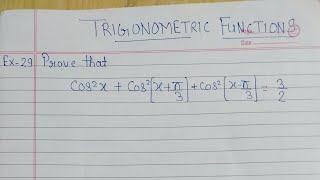 TRIGONOMETRIC FUNCTIONS
Ex-29 Prove that
Cos²x + Cos²[x+π/3] + Cos²[x-π/3] = 3/2